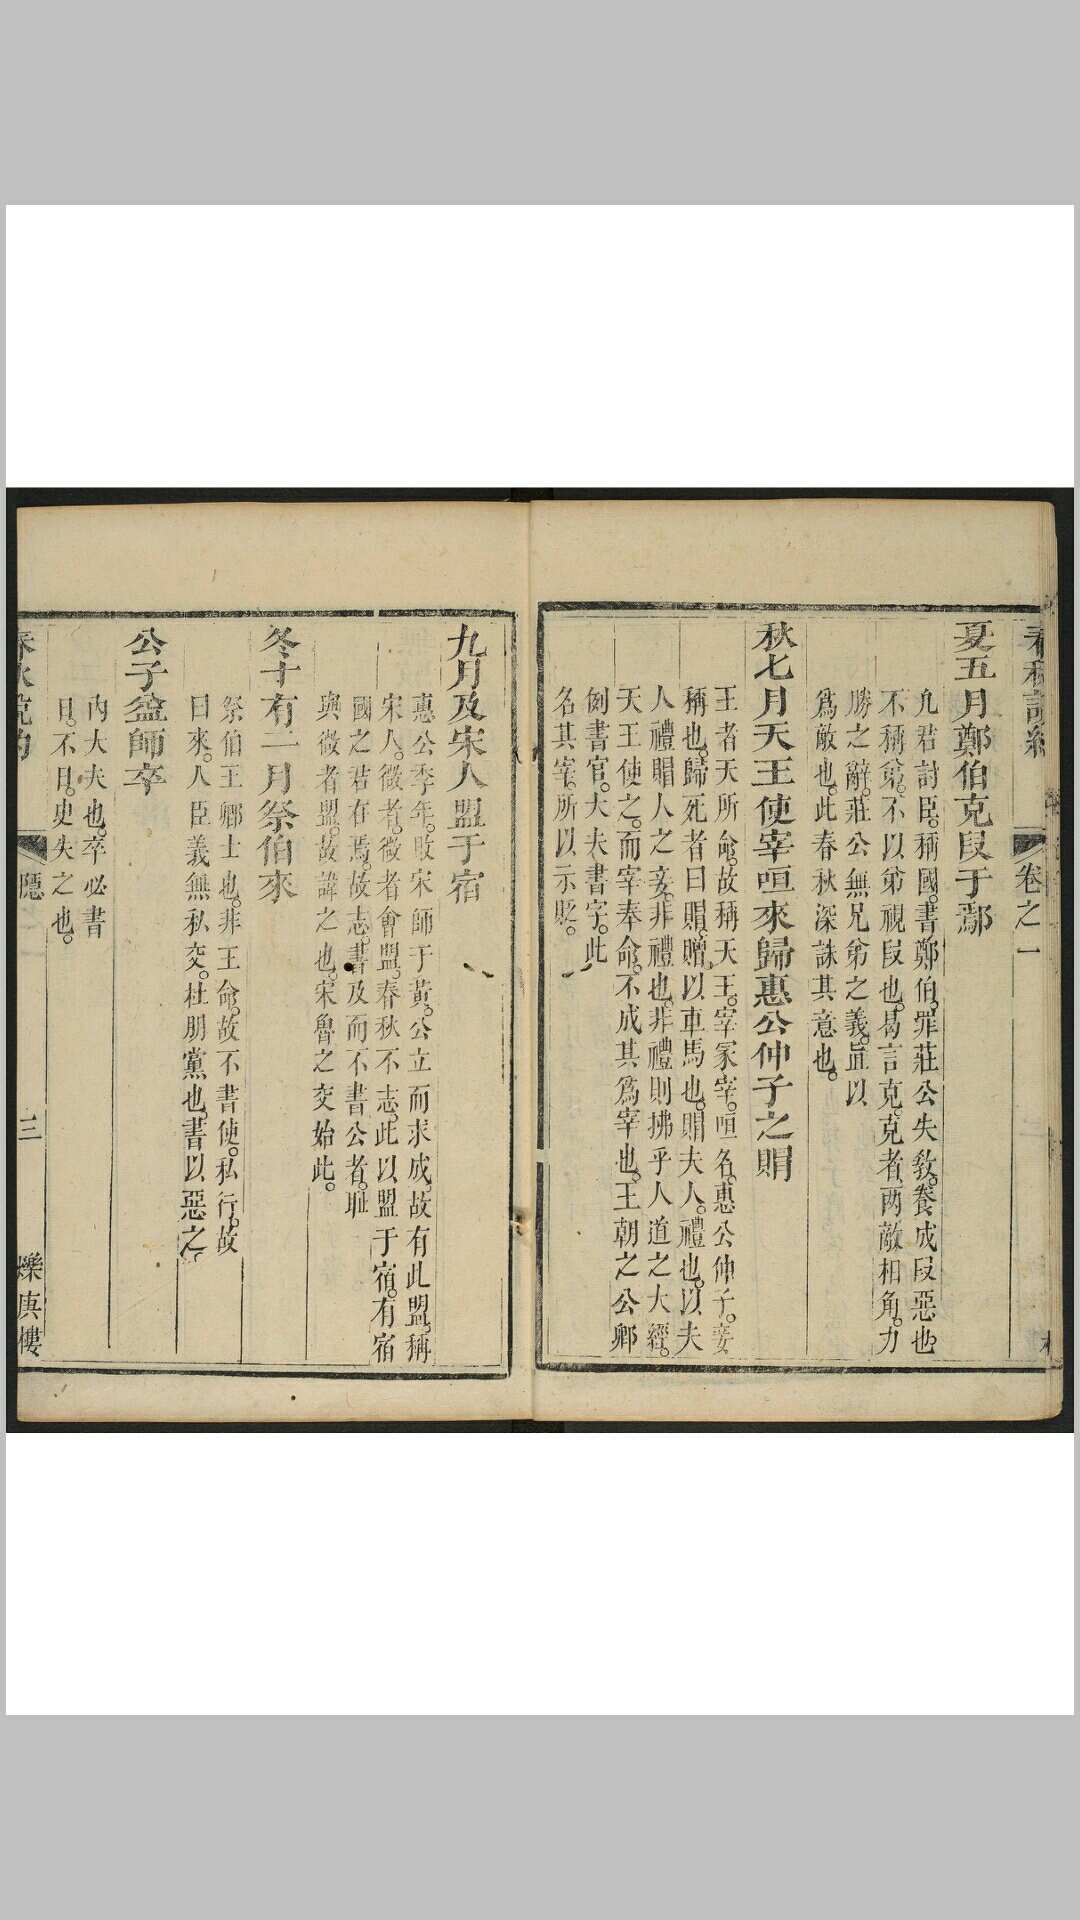 卷之一
夏五月鄭伯克段于鄢
凡君討臣。稱國。書鄭伯。罪莊公失敎。養成段惡也
不稱弟。不以弟視段也。曷言克。克者兩敵相角。力
勝之辭。莊公無兄弟之義。直以
爲敵也。此春秋深誅其意也。
秋七月天王使宰咺來歸惠公仲子之賵
王者天所命。故稱天王。宰冢宰。咺名。惠公仲子。妾
稱也。歸死者曰賵。贈以車馬也。賵夫人。禮也。以夫
人禮賵人之妾。非禮也。非禮則拂乎人道之大經。
天王使之。而宰奉命。不成其爲宰也。王朝之公卿
例書官。大夫書字。此
名其宰。所以示貶。
九月及宋人盟于宿
惠公季年。敗宋師于黃。公立而求成。故有此盟。稱
宋人。微者。微者會盟。春秋不志。此以盟于宿。有宿
國之君在焉。故志。書及而不書公者。恥
與微者盟。故諱之也。宋魯之交始此。
冬十有二月祭伯來
祭伯王卿士也。非王命。故不書使。私行。故
曰來。人臣義無私交。杜朋黨也。書以惡之。
公子益師卒
內大夫也。卒必書
日。不日。史失之也。
隱
三
爍庚樓